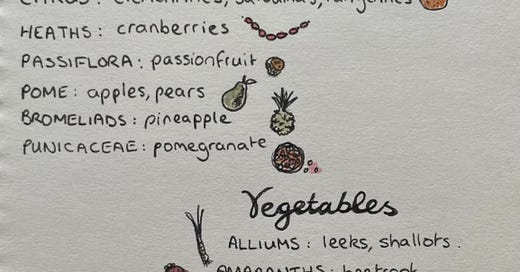 HEATHS: cranberries
PASSIFLORA: passionfruit
POME: apples, pears
BROMELIADS: pineapple
PUNICACEAE: pomegranate
Vegetables
ALLIUMS: leeks, shallots.
AMARANTHS: beetroot